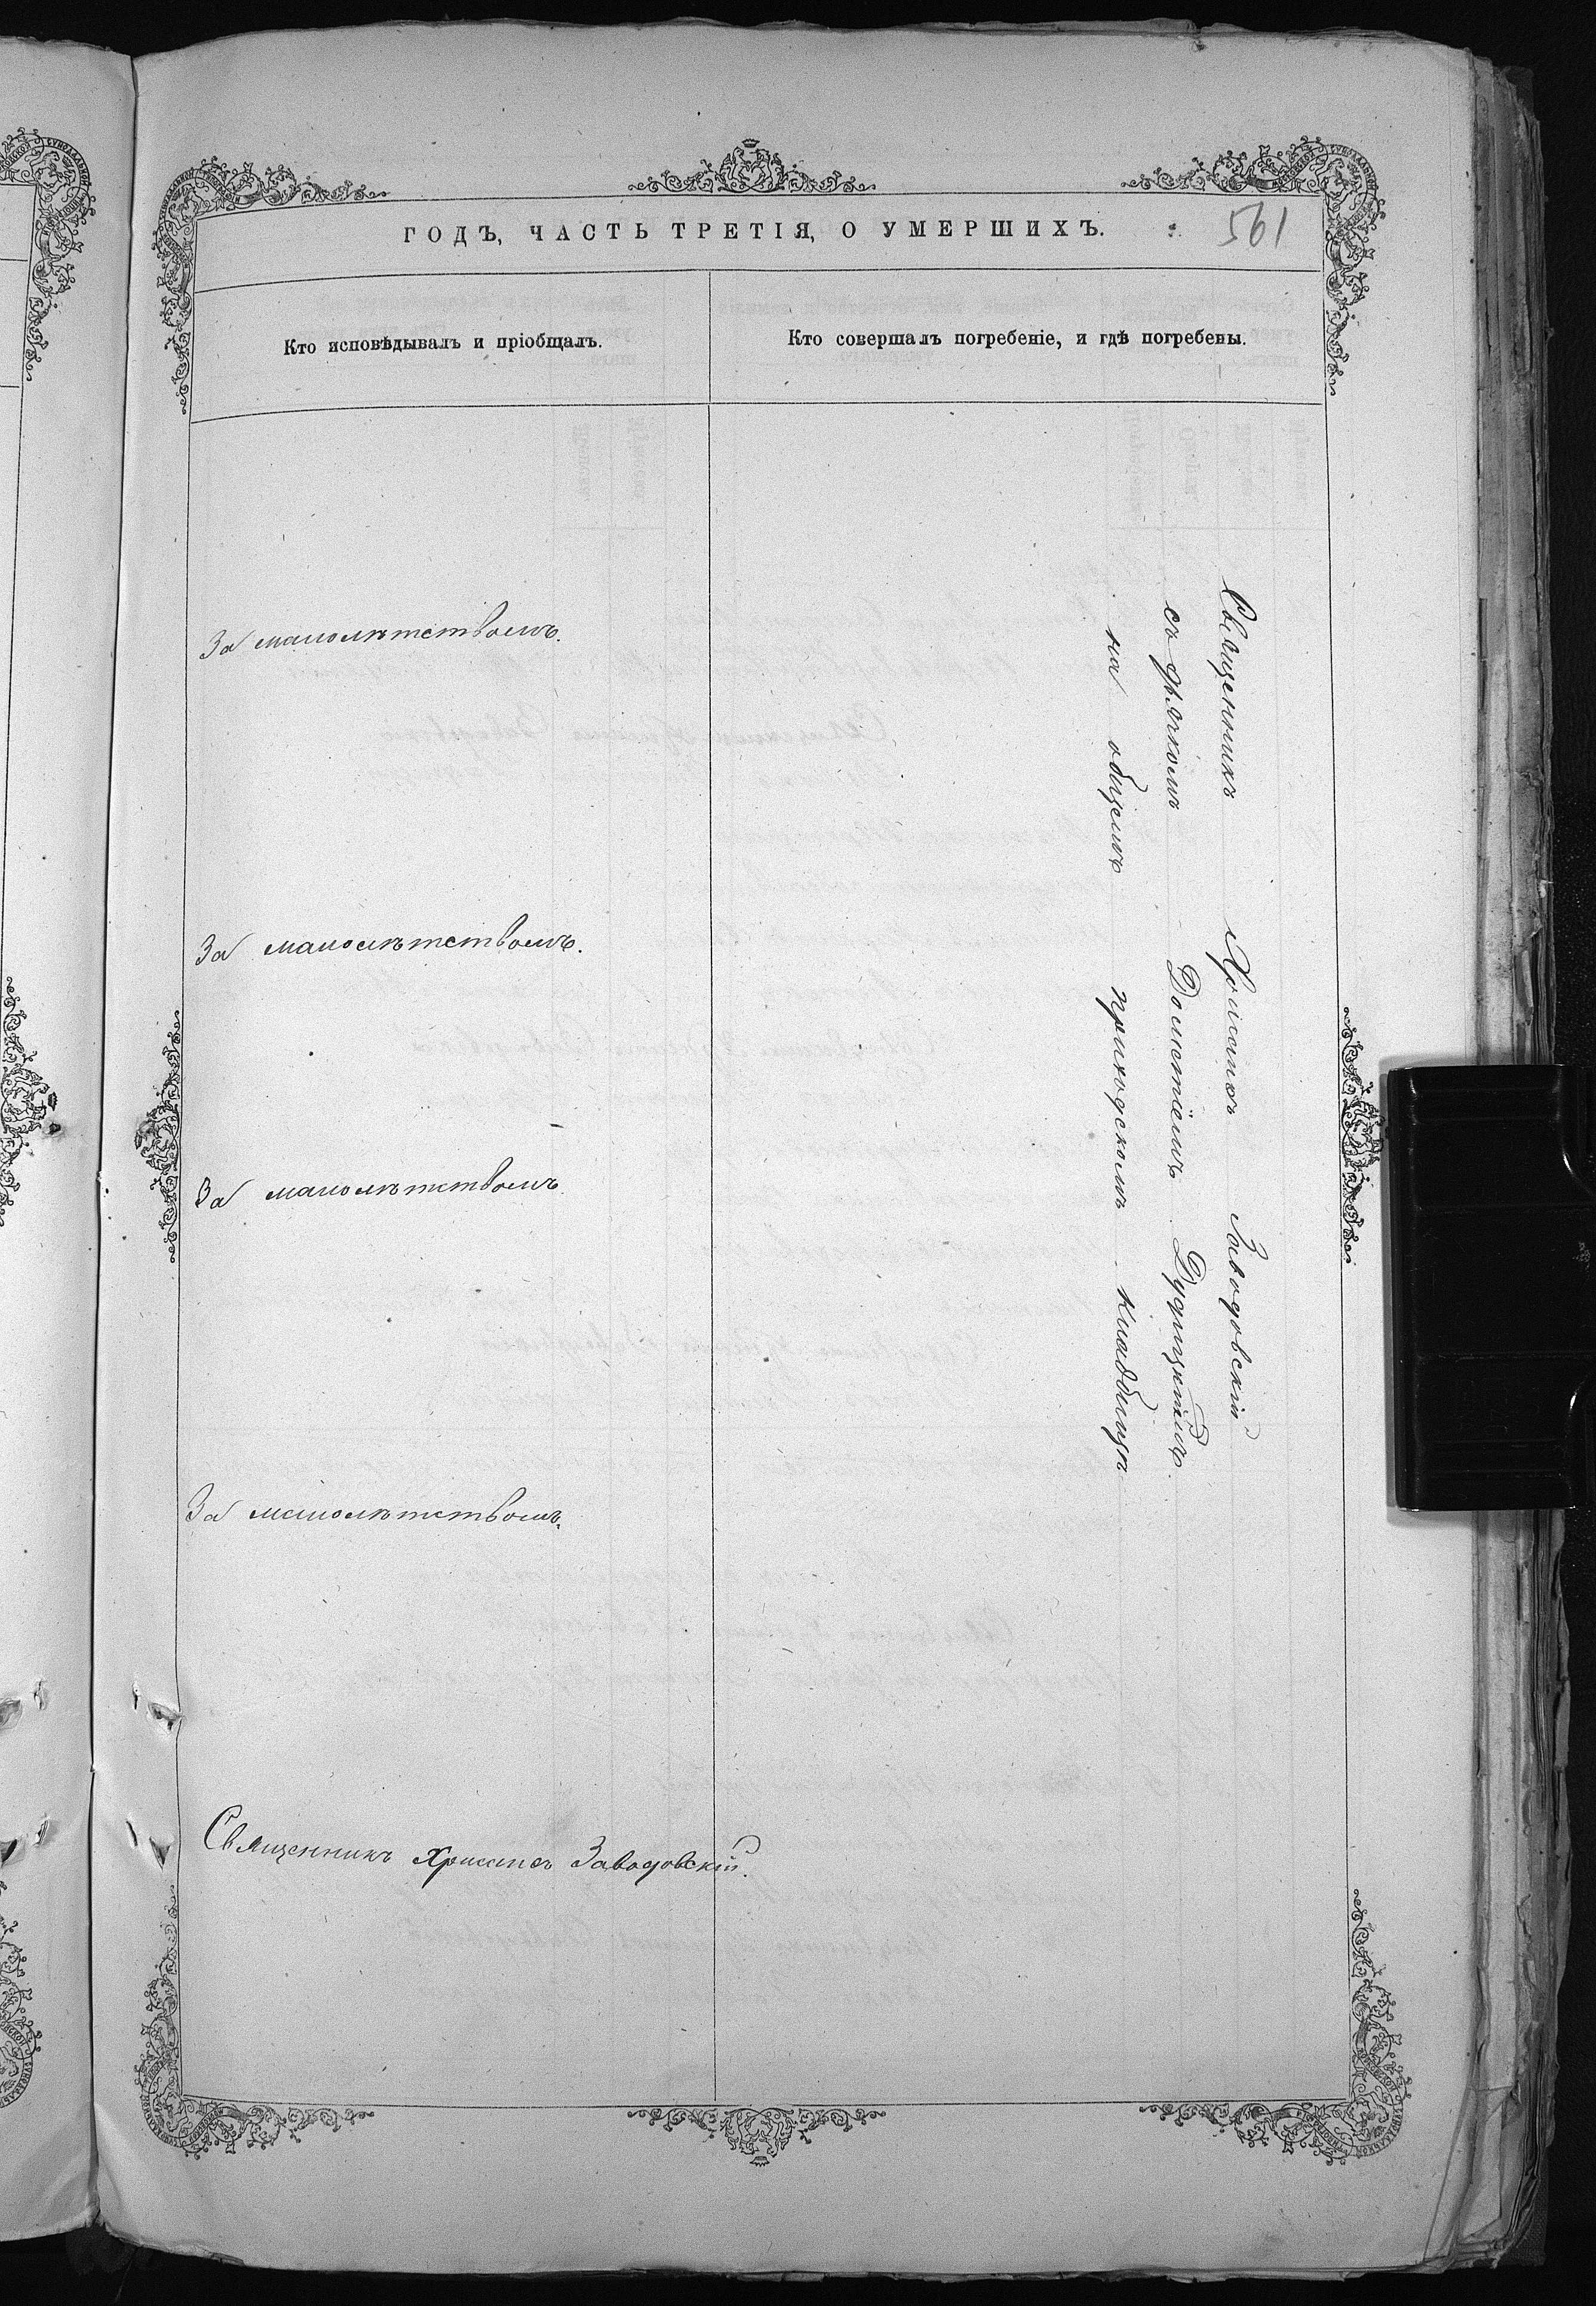 ГОДЪ, ЧАСТЬ ТРЕТІЯ, О УМЕРШИХЪ.
561
Кто исповѣдывалъ и пріобщалъ.
Кто совершалъ погребеніе, и гдѣ погребены.
За малолѣтствомъ.
За малолѣтствомъ.
За малолѣтствомъ
За малолѣтствомъ.
Священникъ Хрисанѳъ Заводовскій.
Священникъ Хрисанѳъ Заводовскій
съ дьячкомъ Дометіемъ Дудицкимъ.
на общемъ приходскомъ кладбищѣ